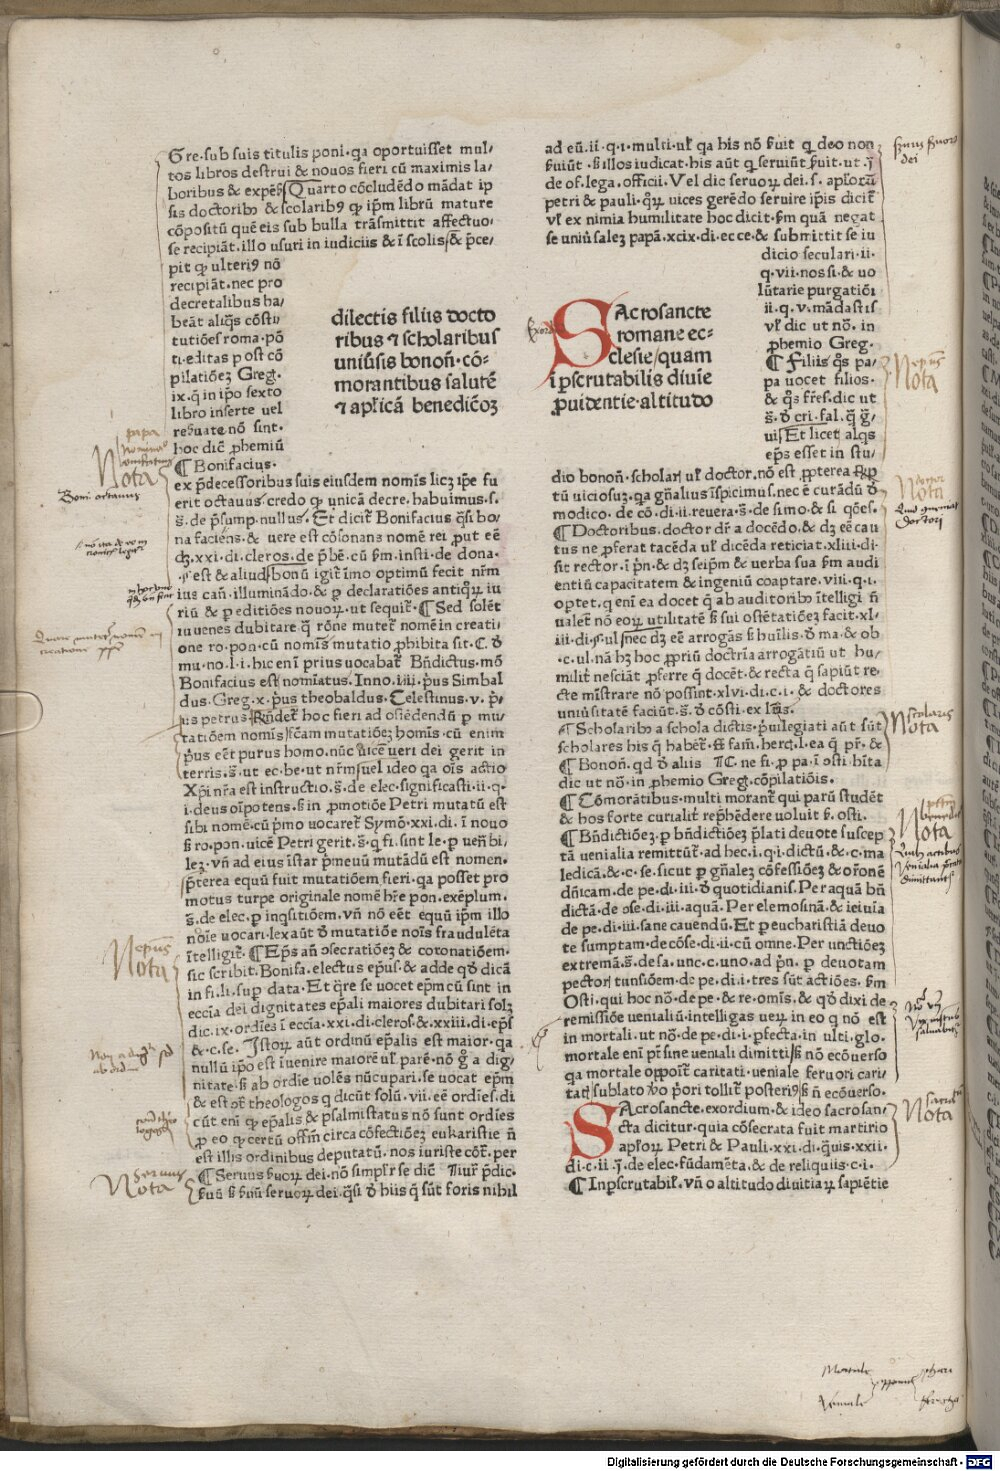 Gre·sub suis titulis poni·qa oportuisset mul⸗
tos libros destrui & nouos fieri cū maximis la⸗
boribus & expēs̄ Quarto cōcludēdo mādat ip
sis doctorib⁹ & scolarib⁹ ꝙ ip̄m librū mature
cōpositū quē eis sub bulla trāsmittit affectuo⸗
se recipiāt·illo usuri in iudiciis & ī scolis/& p̄ce⸗
pit ꝙ ulteri⁹ nō
recipiāt·nec pro
decretalibus ha⸗
beāt aliq̄s cōsti⸗
tutiōes roma·pō
ti·editas post cō
pilatiōeꝫ Greg·
ix·q̄ in ip̄o sexto
libro inserte uel
reßuate nō sint·
hoc dic̄ ꝓhemiū
¶ Bonifacius·
ex p̄decessoribus suis eiusdem nomīs licꝫ ip̄e fu
erit octauus·credo ꝙ unicā decre·habuimus·s·
s̄·de p̄sump·nullus· Et dicit̄ Bonifacius q̄si bo⸗
na faciens·& uere est cōsonans nomē rei ꝓut eē
dꝫ·xxi·di·cleros·de p̄bē·cū ẜm insti·de dona·
est & aliud/bonū igit̄ īmo optimū fecit nr̄m
ius can̄·illuminādo·& ꝑ declaratiōes antiqꝝ iu
riū & ꝑ editiōes nouoꝝ·ut sequit̄·¶ Sed solēt
iuuenes dubitare q̄ rōne mutet̄ nomē in creati⸗
one ro·pon·cū nomīs mutatio ꝓhibita sit·C·ꝺ
mu·no·l·i·hic enī prius uocabat̄ Bn̄dictus·mō
Bonifacius est nomīatus·Inno·iiii·p̄us Simbal
dus·Greg·x·p̄us theobaldus·Celestinus·v·p̄⸗
us petrus/Rn̄det̄ hoc fieri ad ostēdendū ꝑ mu⸗
tatiōem nomīs/fc̄am mutatiōeꝫ homīs·cū enim
p̄us eēt purus homo·nūc uicē ueri dei gerit in
terris·s̄·ut ec·be·ut nr̄m/uel ideo qa oīs actio
Xp̄i nr̄a est instructio·s̄·de elec·significasti·ii·q·
i·deus oīpotens·ß in ꝓmotiōe Petri mutatū est
sibi nomē·cū p̄mo uocaret̄ Symō·xxi·di·ī nouo
ß ro·pon·uicē Petri gerit·s̄·q fi·sint le·p uen̄bi⸗
leꝫ·vn̄ ad eius īstar p̄meuū mutādū est nomen·
p̄terea equū fuit mutatiōem fieri·qa posset pro
motus turpe originale nomē hr̄e pon·exēplum·
s̄·de elec·ꝑ inqsitiōem·vn̄ nō eēt equū ip̄m illo
nōīe uocari·lex aūt ꝺ mutatiōe noīs fraudulēta
ītelligit̄·¶ Ep̄s an̄ ɔsecratiōeꝫ & coronatiōem·
sic scribit·Bonifa·electus ep̄us·& adde qꝺ dicā
in fi·li·sup data·Et q̄re se uocet ep̄m cū sint in
eccīa dei dignitates ep̄ali maiores dubitari solꝫ
dic·ix·ordīes ī eccīa·xxi·di·cleros·& xxiii·di·ep̄s
& c·se· Istoꝝ aūt ordinū ep̄alis est maior·qa
nullū ip̄o est īuenire maiorē ul̄ parē·nō g̊ a dig⸗
nitate·ß ab ordīe uolēs nūcupari·se uocat ep̄m
& est ɔt̄ theologos q dicūt solū·vii·eē ordīes·di
cūt enī ꝙ ep̄alis & psalmistatus nō sunt ordīes
ꝑ eo ꝙ certū offm̄ circa cōfectiōeꝫ eukaristie n̄
est illis ordinibus deputatū·nos iuriste cōt̄·per
¶ Seruus ßuoꝝ dei·nō simplr̄ se dic̄ ¶iur̄ p̄dic·
ßuū ß ßuū seruoꝝ dei·q̄si ꝺ hiis q̄ sūt foris nihil
dilectis filiis docto
ribus ⁊ scholaribus
uniūsis bonon̄·cō⸗
morantibus salutē
⁊ apl̄icā benedic̄oꝫ
ad eū·ii·q·i·multi·ul̄ qa his nō ßuit q deo non
ßuiūt·ß illos iudicat·his aūt q seruiūt ßuit·ut·j̄
de of·lega·officii·Vel dic seruoꝝ dei·s·apl̄oꝝ
petri & pauli·qꝝ uices gerēdo seruire ip̄is dicit̄
vl̄ ex nimia humilitate hoc dicit·ẜm quā negat
se uniūsaleꝫ papā·xcix·di·ecce·& submittit se iu
dicio seculari·ii·
q·vii·nos si·& uo
lūtarie purgatiōi
ii·q·v·mādastis
vl̄ dic ut nō·in
ꝓhemio Greg·
¶ Filiis q̊s pa⸗
pa uocet filios·
& q̊s fr̄es·dic ut
s̄·ꝺ cri·fal·q̄ ḡ⸗
ui/Et licet alqs
ep̄s esset in stu⸗
dio bonon̄·scholari ul̄ doctor·nō est ꝓpterea
tū uiciosuꝫ·qa gn̄alius īspicimus·nec ē curādū ꝺ
modico·de cō·di·ii·reuera·s̄·de simo·& si qōes·
¶ Doctoribus·doctor dr̄ a docēdo·& dꝫ eē cau
tus ne ꝓferat tacēda ul̄ dicēda reticiat·xliii·di⸗
sit rector·ī p̄n·& dꝫ seip̄m & uerba sua ẜm audi
entiū capacitatem & ingeniū coaptare·viii·q·i·
optet·q enī ea docet q̄ ab auditorib⁹ ītelligi n̄
ualēt nō eoꝝ utilitatē ß sui ostētatiōeꝫ facit·xl⸗
nec dꝫ eē arrogās ß huīlis·ꝺ ma·& ob
·c·ul·nā hꝫ hoc ꝓpriū doctrīa arrogātiū ut hu⸗
milit̄ nesciāt ꝓferre q̄ docēt·& recta q̄ sapiūt re⸗
cte mīstrare nō possint·xlvi·di·c·i·& doctores
uniūsitatē faciūt·s̄·ꝺ cōsti·ex lr̄is·
¶ Scholarib⁹ a schola dictis·p̄uilegiati aūt sūt
scholares his q̄ habēt·ff fam̄·herc̄·l·ea q̄ pr̄·&
¶ Bonon̄·qd ꝺ aliis ¶C·ne fi·p pa·ī osti·bīta
dic ut nō·in ꝓhemio Greg·cōpilatiōis·
¶ Cōmorātibus·multi morant̄ qui parū studēt
& hos forte curialit̄ rep̄hēdere uoluit ß·osti·
¶ Bn̄dictiōeꝫ·p bn̄dictiōeꝫ p̄lati deuote suscep
tā uenialia remittūt̄·ad hec·i·q·i·dictū·& c·ma
ledicā·& c·se·sicut ꝑ gn̄aleꝫ cōfessiōeꝫ & orōnē
dn̄icam·de pe·di·iii·ꝺ quotidianis·Per aquā bn̄
dictā·de ɔse·di·iii·aquā·Per elemosinā·& ieiuīa
de pe·di·iii·sane cauendū·Et ꝑ eucharistiā deuo
te sumptam·de cōse·di·ii·cū omne·Per unctiōeꝫ
extremā·s̄·de sa·unc·c·uno·ad p̄n·ꝑ deuotam
pectori tunsiōem·de pe·di·i·tres sūt actiōes·ẜm
Osti·qui hoc nō·de pe·& re·omīs·& qꝺ dixi de
remissiōe uenialiū·intelligas ueꝝ in eo q nō est
in mortali·ut nō·de pe·di·i·ꝑfecta·in ulti·glo·
mortale enī pr̄ sine ueniali dimitti/ß nō ecōuerso
qa mortale opponit̄ caritati·ueniale feruori cari⸗
tati/sublato vo p̄ori tollit̄ posteri⁹/ß n̄ ecōuerso·
SAcrosancte·exordium·& ideo sacrosan⸗
cta dicitur·quia cōsecrata fuit martirio
apl̄oꝝ Petri & Pauli·xxi·di·q̄uis·xxii·
di·c·ii·j̄·de elec·fūdamēta·& de reliquiis·c·i·
¶ Inꝑscrutabil̄·vn̄ o altitudo diuitiaꝝ sapiētie
SAcrosancte
romane ec⸗
clesie/quam
īpscrutabilis diuīe
ꝓuidentie·altitudo
Nota
Nota
Nota
Nota
Nota
Nota
Nota
Nota
Mortale
Veniale
Digitalisierung gefördert durch die Deutsche Forschungsgemeinschaft · DFG